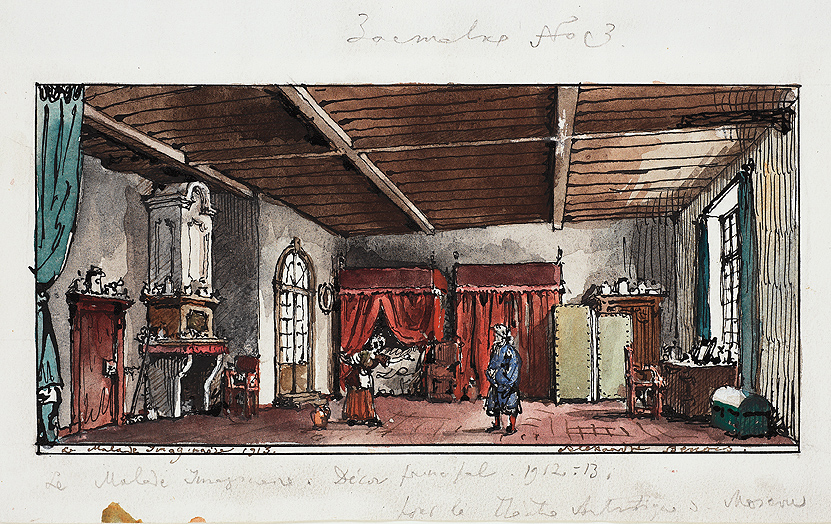 No 3.
Le Malade Imaginaire 1913.
Alexandre Benois.
Le Malade Imaginaire. Décor principal 1912-13.
pour le Théâtre Artistique d. Moscou